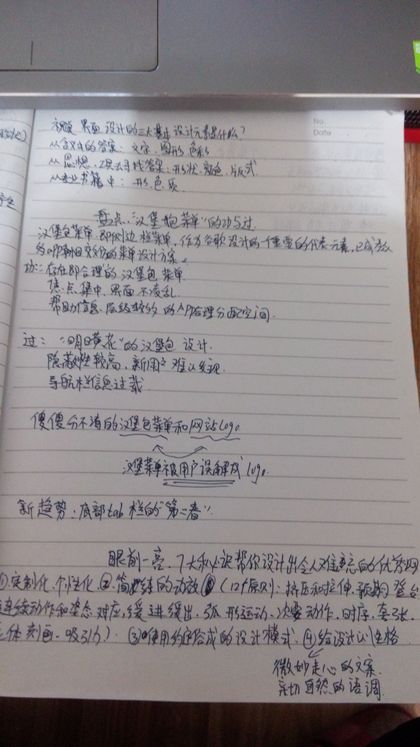 No.
Date
视觉 界面设计的三大基本设计元素是什么?
从百度中的答案: 文字、图形、色彩
从思想、理去寻找答案: 形状、颜色、版式
从专业书籍中: 形、色、质
盘点"汉堡包菜单"的功与过
汉堡包菜单即侧边栏菜单,作为谷歌设计的一重要的代表元素,已成为
的APP制由交好的菜单设计方案。
功: 存在即合理的"汉堡包"菜单
焦点集中,界面不凌乱
帮助信息层级较的APP合理分配空间
过: "明日黄花"的汉堡包设计
隐蔽性较高,新用户难以发现
导航栏信息过载
傻傻分不清的汉堡包菜单和网站logo
汉堡菜单被用户误解成logo
新趋势: 底部tab栏的"第二春"
眼前一亮: 7大秘诀帮你设计出令人难忘的优秀网
①定制化、个性化 ②简练的动效 (12个原则: 挤压和拉伸、预期、登台
连续动作和姿态对应、缓进缓出、弧形运动、次要动作、时序、夸张、
立体刻画、吸引力) ③使用约定俗成的设计模式 ④给设计以性格
微妙走心的文案
亲切自然的语调